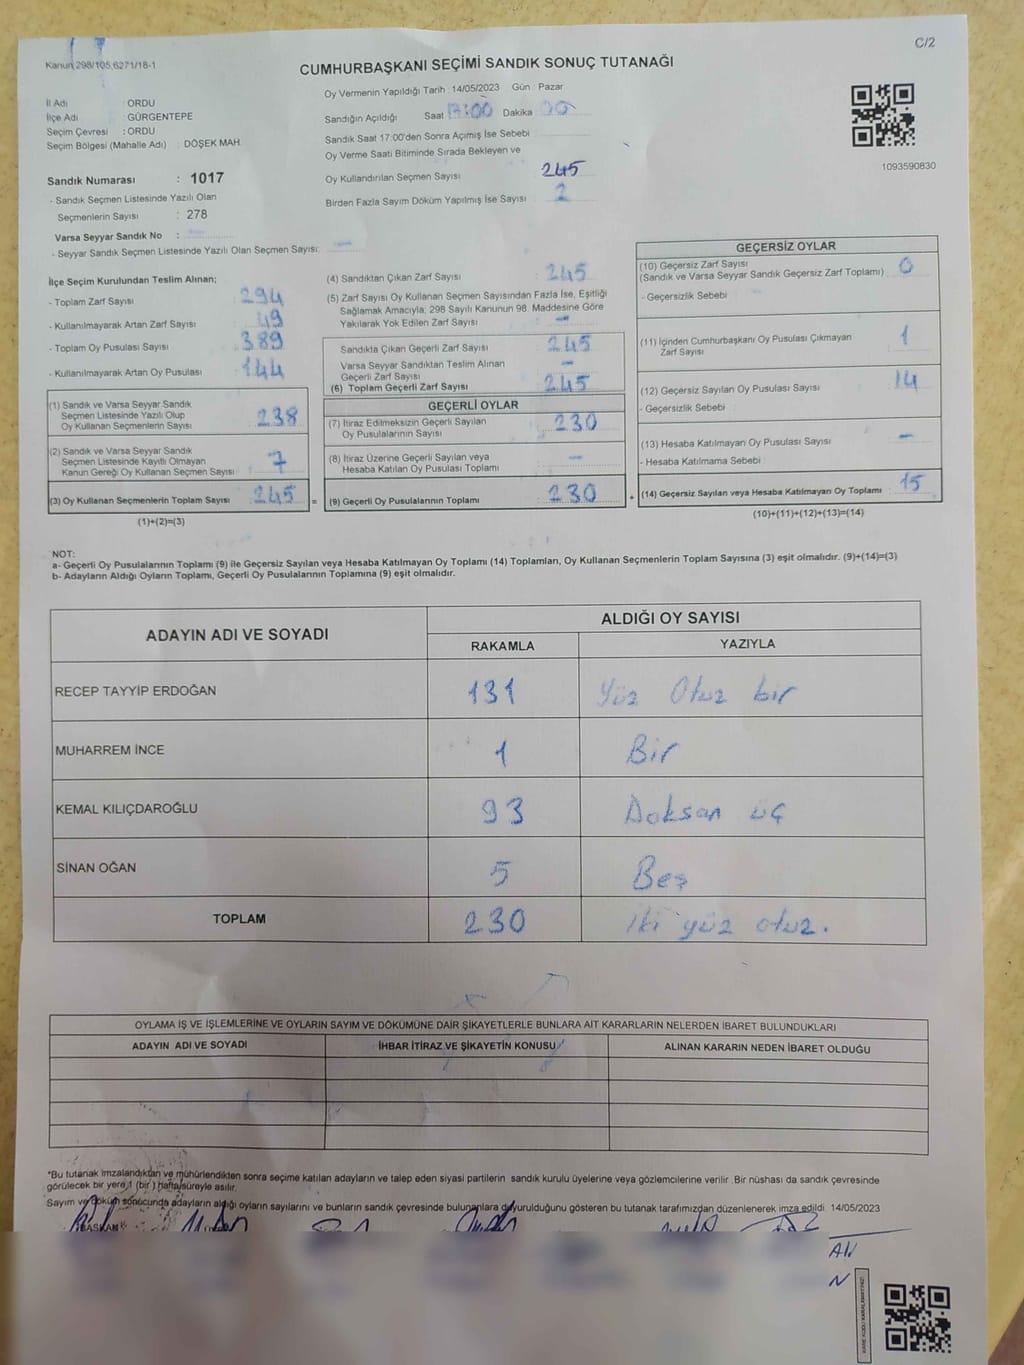 C/2
Kanun 298/105,6271/18-1
CUMHURBAŞKANI SEÇİMİ SANDIK SONUÇ TUTANAĞI
İl Adı : ORDU
İlçe Adı : GÜRGENTEPE
Seçim Çevresi : ORDU
Seçim Bölgesi (Mahalle Adı) : DÖŞEK MAH.
Sandık Numarası : 1017
- Sandık Seçmen Listesinde Yazılı Olan
Seçmenlerin Sayısı : 278
Varsa Seyyar Sandık No : -
- Seyyar Sandık Seçmen Listesinde Yazılı Olan Seçmen Sayısı: -
Oy Vermenin Yapıldığı Tarih : 14/05/2023 Gün : Pazar
Sandığın Açıldığı Saat 17:00 Dakika 00
Sandık Saat 17:00'den Sonra Açımış İse Sebebi
Oy Verme Saati Bitiminde Sırada Bekleyen ve
Oy Kullandırılan Seçmen Sayısı 245
Birden Fazla Sayım Döküm Yapılmış İse Sayısı 2
1093590830
İlçe Seçim Kurulundan Teslim Alınan;
- Toplam Zarf Sayısı 294
- Kullanılmayarak Artan Zarf Sayısı 49
- Toplam Oy Pusulası Sayısı 389
- Kullanılmayarak Artan Oy Pusulası 144
(1) Sandık ve Varsa Seyyar Sandık
Seçmen Listesinde Yazılı Olup
Oy Kullanan Seçmenlerin Sayısı 238
(2) Sandık ve Varsa Seyyar Sandık
Seçmen Listesinde Kayıtlı Olmayan
Kanun Gereği Oy Kullanan Seçmen Sayısı 7
(3) Oy Kullanan Seçmenlerin Toplam Sayısı 245 =
(1)+(2)=(3)
(4) Sandıktan Çıkan Zarf Sayısı 245
(5) Zarf Sayısı Oy Kullanan Seçmen Sayısından Fazla İse, Eşitliği
Sağlamak Amacıyla; 298 Sayılı Kanunun 98. Maddesine Göre
Yakılarak Yok Edilen Zarf Sayısı -
Sandıkta Çıkan Geçerli Zarf Sayısı 245
Varsa Seyyar Sandıktan Teslim Alınan
Geçerli Zarf Sayısı -
(6) Toplam Geçerli Zarf Sayısı 245
GEÇERLİ OYLAR
(7) İtiraz Edilmeksizin Geçerli Sayılan
Oy Pusulalarının Sayısı 230
(8) İtiraz Üzerine Geçerli Sayılan veya
Hesaba Katılan Oy Pusulası Toplamı -
(9) Geçerli Oy Pusulalarının Toplamı 230 +
GEÇERSİZ OYLAR
(10) Geçersiz Zarf Sayısı
(Sandık ve Varsa Seyyar Sandık Geçersiz Zarf Toplamı) 0
- Geçersizlik Sebebi
(11) İçinden Cumhurbaşkanı Oy Pusulası Çıkmayan
Zarf Sayısı 1
(12) Geçersiz Sayılan Oy Pusulası Sayısı 14
- Geçersizlik Sebebi
(13) Hesaba Katılmayan Oy Pusulası Sayısı -
- Hesaba Katılmama Sebebi
(14) Geçersiz Sayılan veya Hesaba Katılmayan Oy Toplamı 15
(10)+(11)+(12)+(13)=(14)
NOT:
a- Geçerli Oy Pusulalarının Toplamı (9) ile Geçersiz Sayılan veya Hesaba Katılmayan Oy Toplamı (14) Toplamları, Oy Kullanan Seçmenlerin Toplam Sayısına (3) eşit olmalıdır. (9)+(14)=(3)
b- Adayların Aldığı Oyların Toplamı, Geçerli Oy Pusulalarının Toplamına (9) eşit olmalıdır.
ADAYIN ADI VE SOYADI ALDIĞI OY SAYISI
RAKAMLA YAZIYLA
RECEP TAYYİP ERDOĞAN 131 Yüz Otuz bir
MUHARREM İNCE 1 Bir
KEMAL KILIÇDAROĞLU 93 Doksan üç
SİNAN OĞAN 5 Beş
TOPLAM 230 İki yüz otuz.
OYLAMA İŞ VE İŞLEMLERİNE VE OYLARIN SAYIM VE DÖKÜMÜNE DAİR ŞİKAYETLERLE BUNLARA AİT KARARLARIN NELERDEN İBARET BULUNDUKLARI
ADAYIN ADI VE SOYADI İHBAR İTİRAZ VE ŞİKAYETİN KONUSU ALINAN KARARIN NEDEN İBARET OLDUĞU
*Bu tutanak imzalandıktan ve mühürlendikten sonra seçime katılan adayların ve talep eden siyasi partilerin sandık kurulu üyelerine veya gözlemcilerine verilir. Bir nüshası da sandık çevresinde
görülecek bir yere 1 (bir) hafta süreyle asılır.
Sayım ve döküm sonucunda adayların aldığı oyların sayılarını ve bunların sandık çevresinde bulunanlara duyurulduğunu gösteren bu tutanak tarafımızdan düzenlenerek imza edildi. 14/05/2023
BAŞKAN